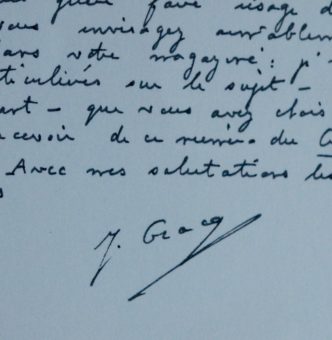 faire usage d
vous envisagez aimablem
ans votre magazine : j'
ticulivés sur le sujet –
ant – que vous avez chois
cevoir de ce numéro du
Avec mes salutations les
J. Gracq